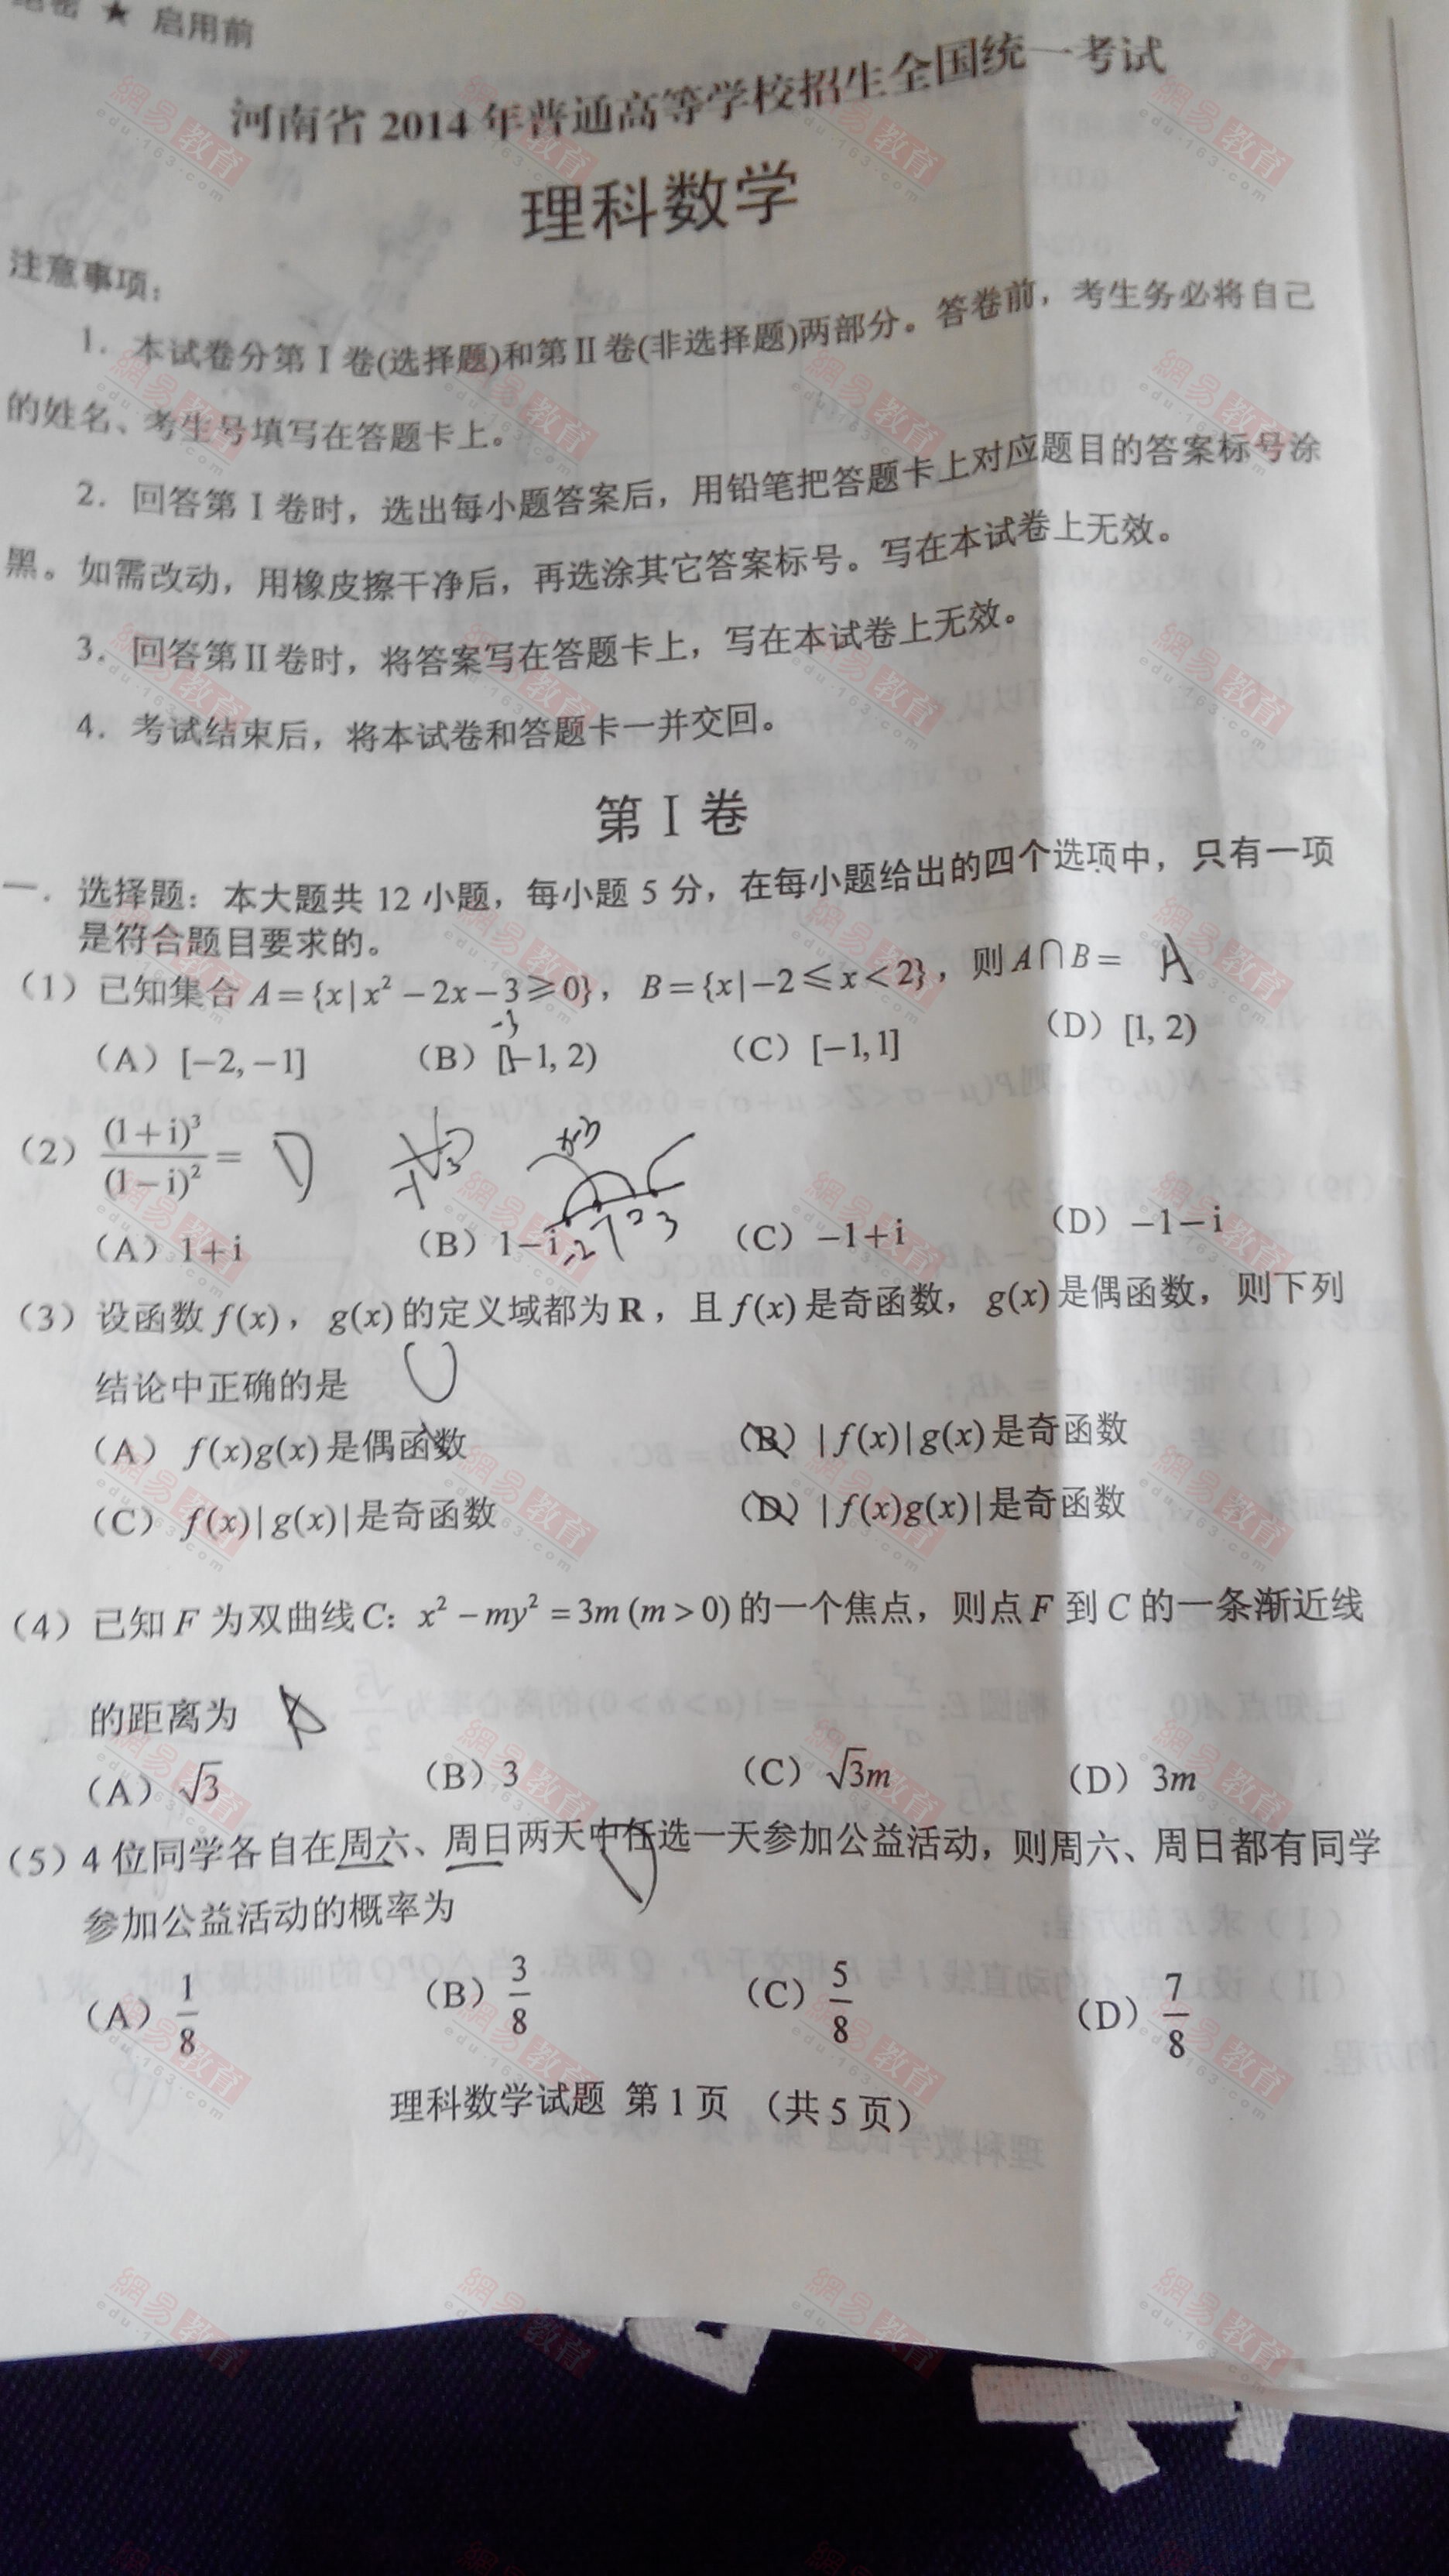 绝密 ★ 启用前
河南省 2014 年普通高等学校招生全国统一考试
理科数学
注意事项：
1．本试卷分第Ⅰ卷(选择题)和第Ⅱ卷(非选择题)两部分。答卷前，考生务必将自己
的姓名、考生号填写在答题卡上。
2．回答第Ⅰ卷时，选出每小题答案后，用铅笔把答题卡上对应题目的答案标号涂
黑。如需改动，用橡皮擦干净后，再选涂其它答案标号。写在本试卷上无效。
3．回答第Ⅱ卷时，将答案写在答题卡上，写在本试卷上无效。
4．考试结束后，将本试卷和答题卡一并交回。
第Ⅰ卷
一．选择题：本大题共 12 小题，每小题 5 分，在每小题给出的四个选项中，只有一项
是符合题目要求的。
（1）已知集合 A={x|x²−2x−3⩾0}，B={x|−2⩽x<2}，则A∩B= A
-3
（A）[−2,−1] （B）[−1,2) （C）[−1,1] （D）[1,2)
（2）(1+i)³/(1−i)²= D
（A）1+i （B）1−i （C）−1+i （D）−1−i
-2 -1 2 3
（3）设函数 f(x)，g(x)的定义域都为R，且 f(x)是奇函数，g(x)是偶函数，则下列
结论中正确的是
（A）f(x)g(x)是偶函数 （B）|f(x)|g(x)是奇函数
（C）f(x)|g(x)|是奇函数 （D）|f(x)g(x)|是奇函数
（4）已知 F 为双曲线C：x²−my²=3m(m>0)的一个焦点，则点F 到C 的一条渐近线
的距离为 A
（A）√3 （B）3 （C）√3m （D）3m
（5）4 位同学各自在周六、周日两天中任选一天参加公益活动，则周六、周日都有同学
参加公益活动的概率为
（A）1/8 （B）3/8 （C）5/8 （D）7/8
理科数学试题 第 1 页 （共 5 页）
網易教育
edu.163.com